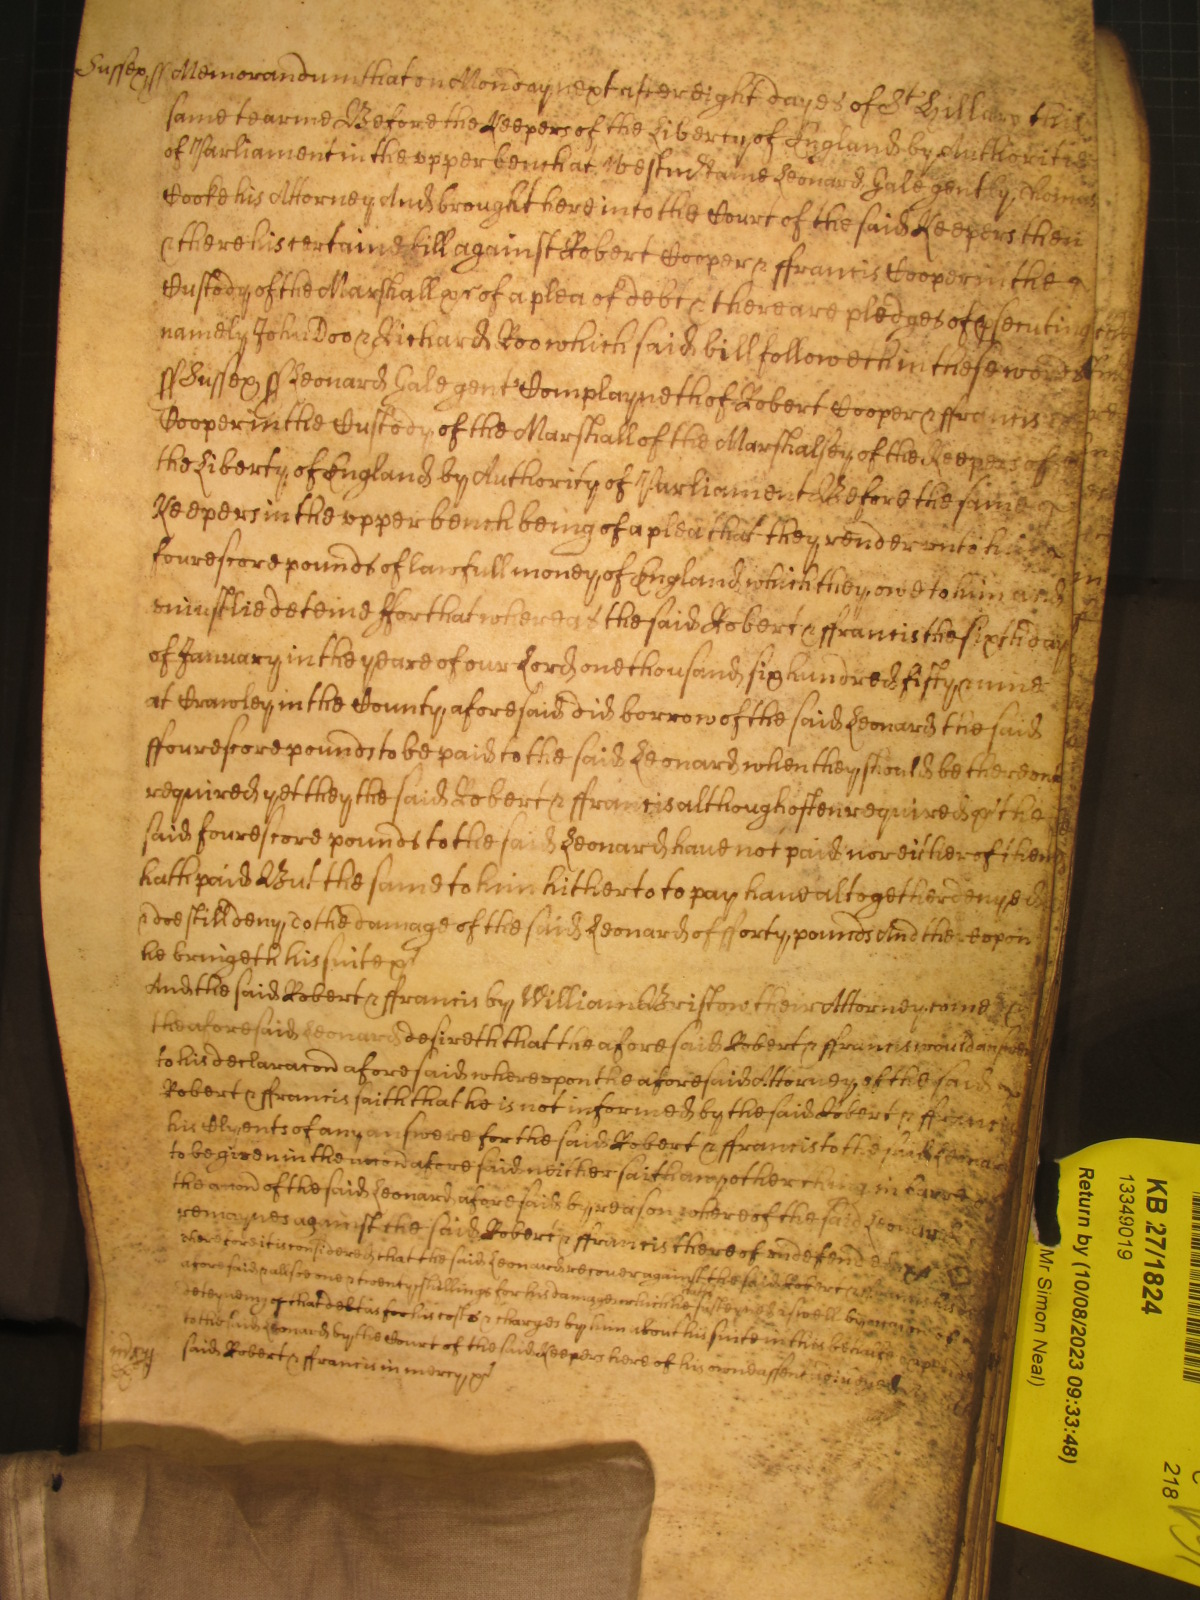 Sussex ss Memorandum that on Monday next after eight dayes of St Hillary this
same tearme Before the Keepers of the Liberty of England by Authoritie
of Parliament in the upper bench at Westm Came Leonard Gale gent by Thomas
Cooke his Attorney And brought here into the Court of the said Keepers then
& there his certaine bill against Robert Cooper & ffrancis Cooper in the
Custody of the Marshall &c of a plea of debt & there are pledges of psecuting
namely John Doo & Richard Roo which said bill followeth in these words
ss Sussex ss Leonard Gale gent Complayneth of Robert Cooper & ffrancis
Cooper in the Custody of the Marshall of the Marshalsey of the Keepers of
the Liberty of England by Authority of Parliament Before the same
Keepers in the upper bench being of a plea that they render unto him
fourescore pounds of lawfull money of England which they owe to him and
uniustlie deteine ffor that whereas the said Robert & ffrancis the sixth day
of January in the yeare of our Lord one thousand six hundred fifty & nine
at Crawley in the County aforesaid did borrow of the said Leonard the said
ffourescore pounds to be paid to the said Leonard when they should be thereont
required yet they the said Robert & ffrancis although often required &c the
said fourescore pounds to the said Leonard have not paid nor either of them
hath paid But the same to him hitherto to pay have altogether denyed
& doe still deny To the damage of the said Leonard of fforty pounds And thereupon
he bringeth his suite &c
And the said Robert & ffrancis by William Bristow their Attorney come &
the aforesaid Leonard desireth that the aforesaid Robert & ffrancis would answer
to his declaracon aforesaid whereupon the aforesaid Attorney of the said
Robert & ffrancis saith that he is not informed by the said Robert & ffrancis
his Clyents of any answere for the said Robert & ffrancis to the said Leonard
to be given in the accon aforesaid neither saith any other thing in barre
the accon of the said Leonard aforesaid by reason whereof the said Leonard
remaynes against the said Robert & ffrancis thereof undefended &c
Therefore it is considered that the said Leonard recover against the said Robert & ffrancis his
aforesaid & allsoe one & twenty shillings for his damages which he susteyned aswell by occasion of
deteyning of that debt as for his costs & charges by him about his suite in this behalfe expended
to the said Leonard by the Court of the said Keepers here of his owne assent
mercy said Robert & ffrancis in mercy &c
KB 27/1824
13349019
Return by (10/08/2023 09:33:48)
(Mr Simon Neal)
218